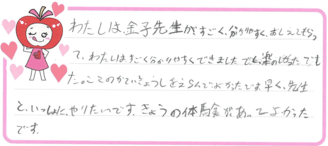 わたしは、金子先生がすごく、分かりやすく、おしえてもらっ
て、わたしはすごく分かりやすくできました。でも、楽しかった。でも
たの、このかていきょうしをえらんでよかったです。早く、先生
と、いっしょに、やりたいです。きょうの体験会があってよかった
です。